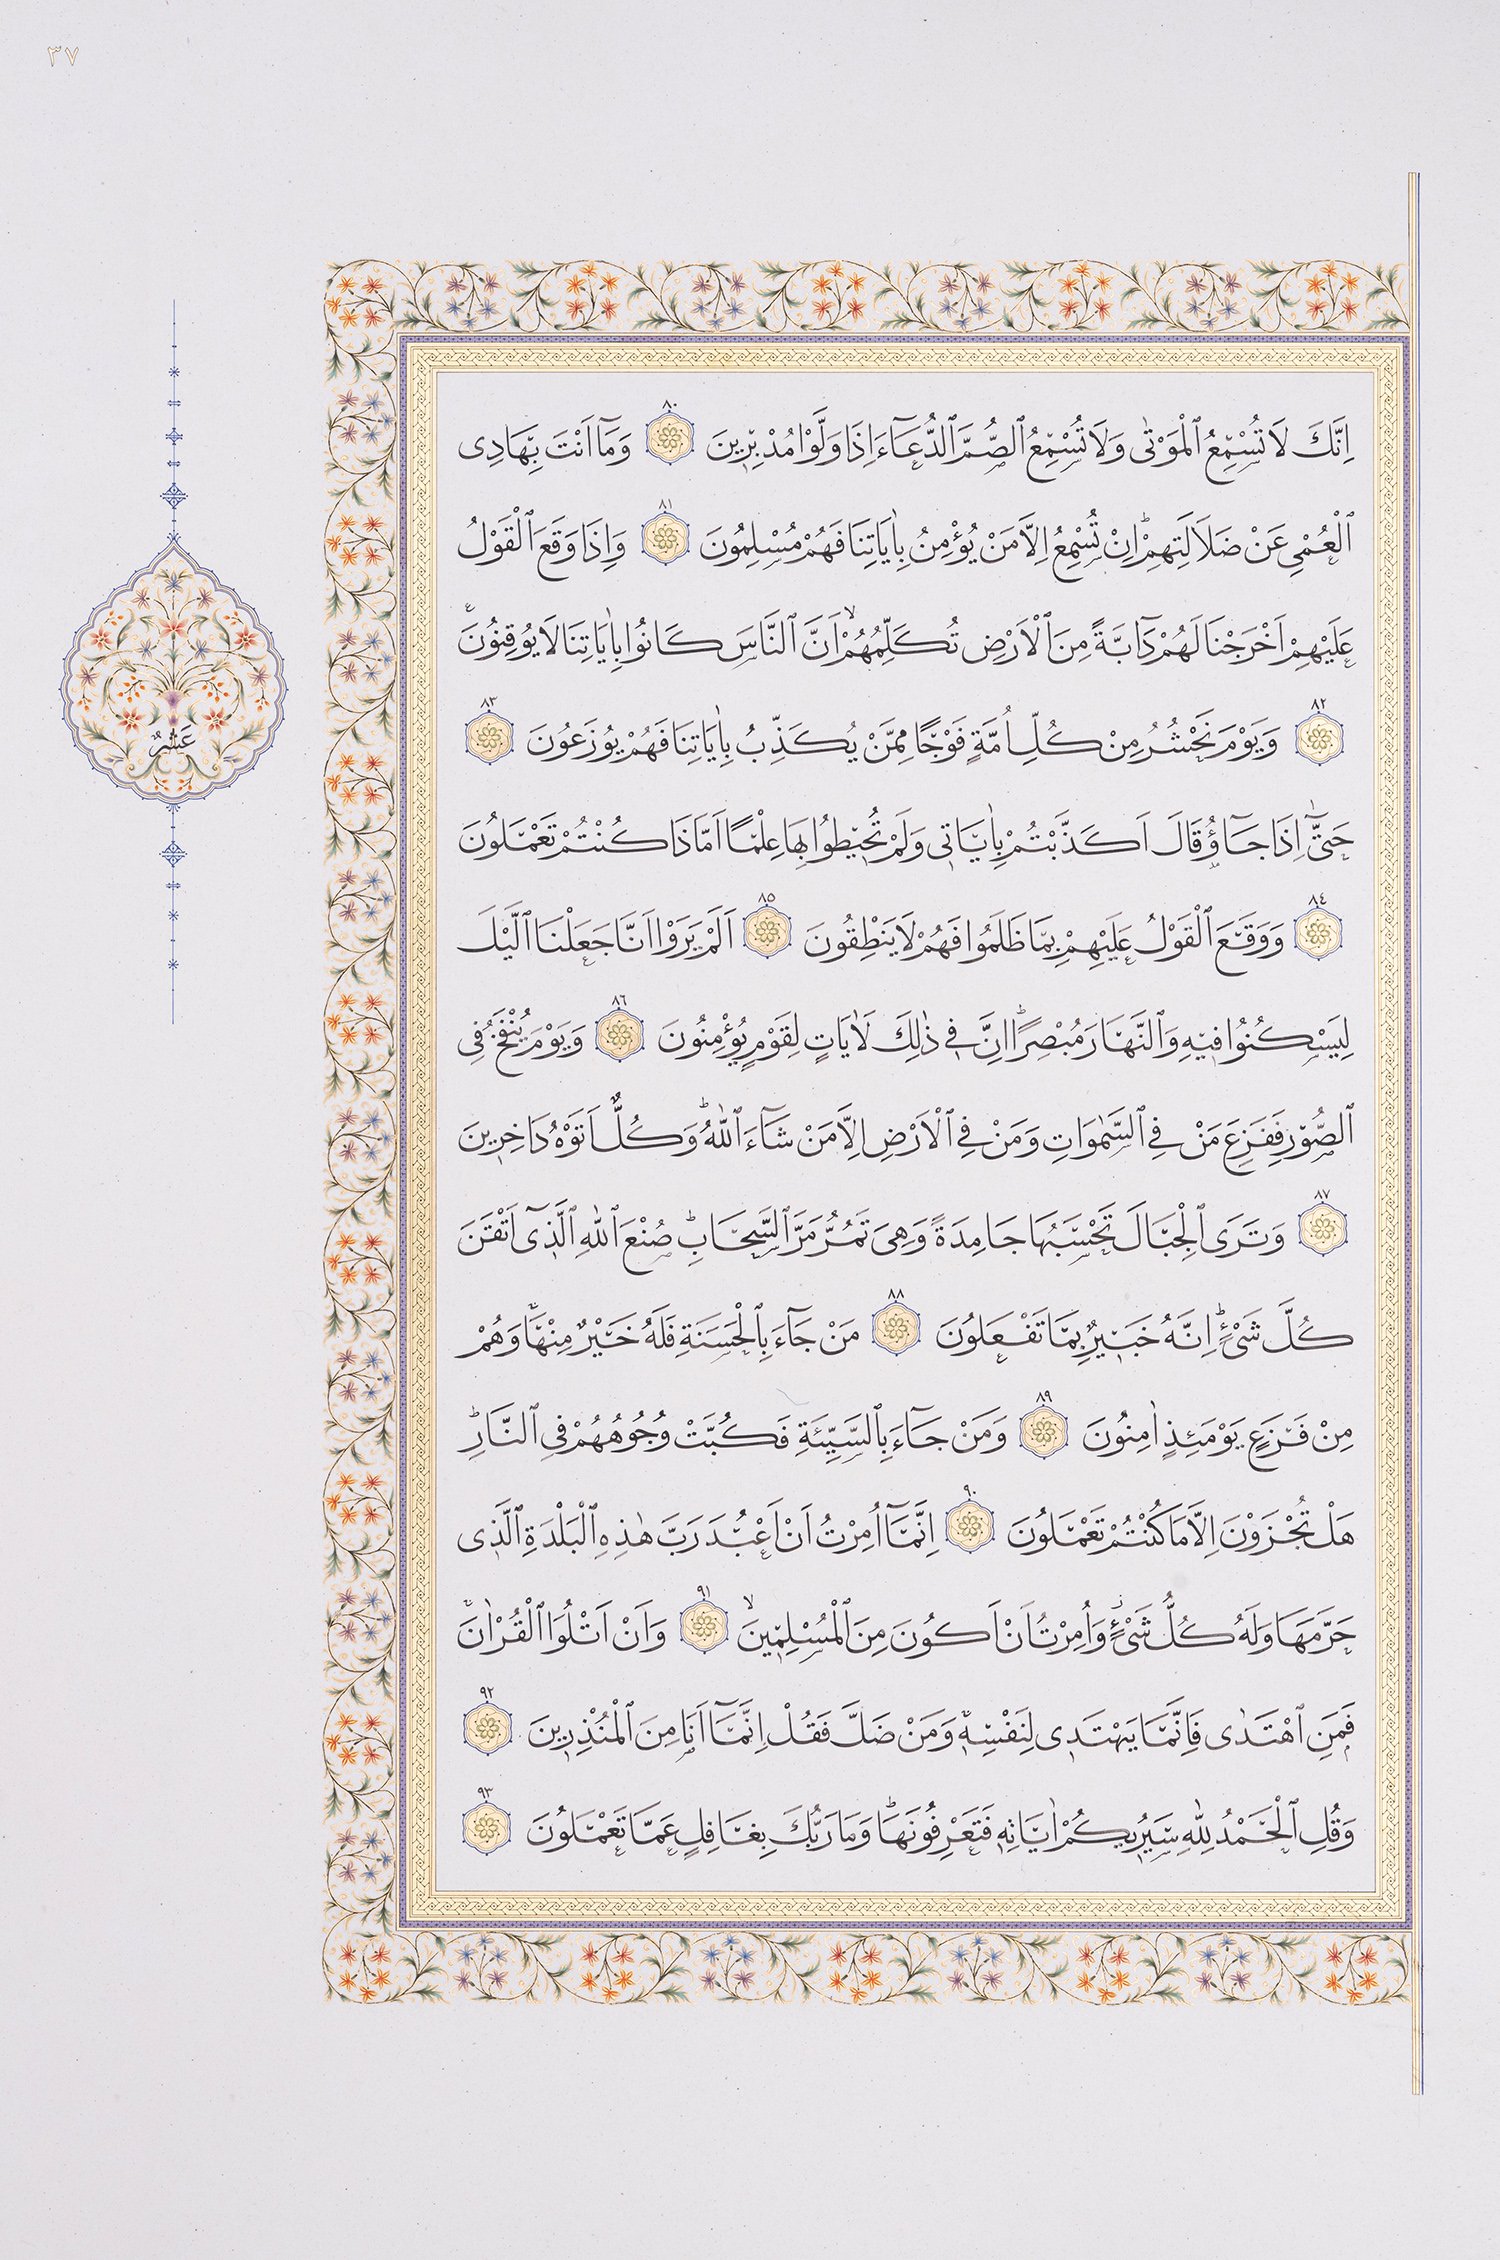 ٣٧
اِنَّكَ لَا تُسْمِعُ ٱلْمَوْتٰى وَلَا تُسْمِعُ ٱلصُّمَّ ٱلدُّعَٓاءَ اِذَا وَلَّوْا مُدْبِرٖينَ ٨٠ وَمَٓا اَنْتَ بِهَادِى
ٱلْعُمْىِ عَنْ ضَلَالَتِهِمْؕ اِنْ تُسْمِعُ اِلَّا مَنْ يُؤْمِنُ بِاٰيَاتِنَا فَهُمْ مُسْلِمُونَ ٨١ وَاِذَا وَقَعَ ٱلْقَوْلُ
عَلَيْهِمْ اَخْرَجْنَا لَهُمْ دَٓابَّةً مِنَ ٱلْاَرْضِ تُكَلِّمُهُمْۙ اَنَّ ٱلنَّاسَ كَانُوا بِاٰيَاتِنَا لَا يُوقِنُونَ
٨٢ وَيَوْمَ نَحْشُرُ مِنْ كُلِّ اُمَّةٍ فَوْجًا مِمَّنْ يُكَذِّبُ بِاٰيَاتِنَا فَهُمْ يُوزَعُونَ ٨٣
حَتّٰٓى اِذَا جَٓاؤُ۫ قَالَ اَكَذَّبْتُمْ بِاٰيَاتٖى وَلَمْ تُحٖيطُوا بِهَا عِلْمًا اَمَّا ذَا كُنْتُمْ تَعْمَلُونَ
٨٤ وَوَقَعَ ٱلْقَوْلُ عَلَيْهِمْ بِمَا ظَلَمُوا فَهُمْ لَا يَنْطِقُونَ ٨٥ اَلَمْ يَرَوْا اَنَّا جَعَلْنَا ٱلَّيْلَ
لِيَسْكُنُوا فٖيهِ وَٱلنَّهَارَ مُبْصِرًاؕ اِنَّ فٖى ذٰلِكَ لَاٰيَاتٍ لِقَوْمٍ يُؤْمِنُونَ ٨٦ وَيَوْمَ يُنْفَخُ فِى
ٱلصُّورِ فَفَزِعَ مَنْ فِى ٱلسَّمٰوَاتِ وَمَنْ فِى ٱلْاَرْضِ اِلَّا مَنْ شَٓاءَ ٱللّٰهُؕ وَكُلٌّ اَتَوْهُ دَاخِرٖينَ
٨٧ وَتَرَى ٱلْجِبَالَ تَحْسَبُهَا جَامِدَةً وَهِىَ تَمُرُّ مَرَّ ٱلسَّحَابِؕ صُنْعَ ٱللّٰهِ ٱلَّذٖٓى اَتْقَنَ
كُلَّ شَىْءٍؕ اِنَّهُ خَبٖيرٌ بِمَا تَفْعَلُونَ ٨٨ مَنْ جَٓاءَ بِٱلْحَسَنَةِ فَلَهُ خَيْرٌ مِنْهَاۚ وَهُمْ
مِنْ فَزَعٍ يَوْمَئِذٍ اٰمِنُونَ ٨٩ وَمَنْ جَٓاءَ بِٱلسَّيِّئَةِ فَكُبَّتْ وُجُوهُهُمْ فِى ٱلنَّارِؕ
هَلْ تُجْزَوْنَ اِلَّا مَا كُنْتُمْ تَعْمَلُونَ ٩٠ اِنَّمَٓا اُمِرْتُ اَنْ اَعْبُدَ رَبَّ هٰذِهِ ٱلْبَلْدَةِ ٱلَّذٖى
حَرَّمَهَا وَلَهُ كُلُّ شَىْءٍؗ وَاُمِرْتُ اَنْ اَكُونَ مِنَ ٱلْمُسْلِمٖينَۙ ٩١ وَاَنْ اَتْلُوَا ٱلْقُرْاٰنَۚ
فَمَنِ ٱهْتَدٰى فَاِنَّمَا يَهْتَدٖى لِنَفْسِهٖۚ وَمَنْ ضَلَّ فَقُلْ اِنَّمَٓا اَنَا مِنَ ٱلْمُنْذِرٖينَ ٩٢
وَقُلِ ٱلْحَمْدُ لِلّٰهِ سَيُرٖيكُمْ اٰيَاتِهٖ فَتَعْرِفُونَهَاؕ وَمَا رَبُّكَ بِغَافِلٍ عَمَّا تَعْمَلُونَ ٩٣
عَشْرٌ